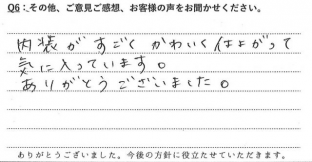 Q6：その他、ご意見ご感想、お客様の声をお聞かせください。
内装がすごくかわいく仕上がって
気に入っています。
ありがとうございました。
ありがとうございました。今後の方針に役立たせていただきます。